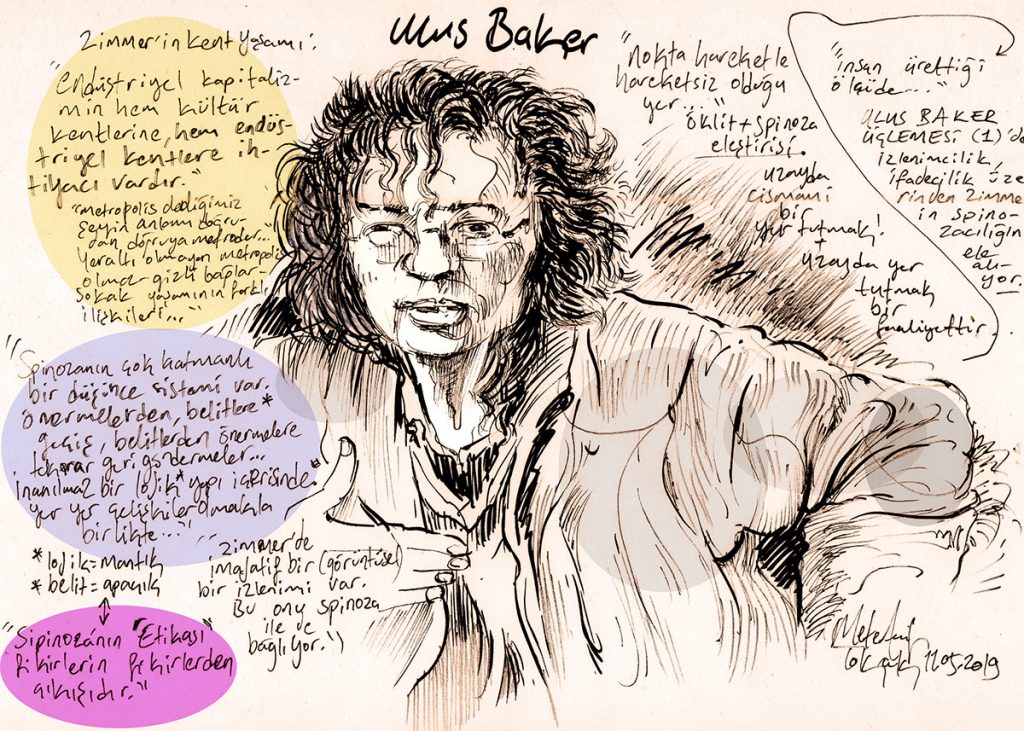 Ulus Baker
Zimmer'in kent yaşamı:
"Endüstriyel kapitaliz-
min hem kültür
kentlerine, hem endüs-
triyel kentlere ih-
tiyacı vardır."
"metropolis dediğimiz
şeyin anlamı doğru-
dan doğruya metrodur...
Yeraltı olmayan metropolis
olmaz gizli bağlar-
Sokak yaşamının farklı
ilişkileri..."
"Spinozanın çok katmanlı
bir düşünce sistemi var.
önermelerden, belitlere*
geçiş, belitlerden önermelere
tekrar geri göndermeler...
İnanılmaz bir lojik* yapı içerisinde
yer yer çelişkiler olmakla
birlikte..."
*lojik=mantık
*belit=apaçık
"Sipinozánın "Etikası"
fikirlerin fikirlerden
çıkışıdır."
"Zimmer'de
imajatif bir (görüntüsel)
bir izlenimi var.
Bu onu spinoza
ile de
bağlıyor.")
"Nokta hareketle
hareketsiz olduğu
yer..."
öklit+spinoza
eleştirisi.
uzayda
cismani
bir
yer tutmak!
+
uzayda yer
tutmak
bir
faaliyettir.
"insan ürettiği
ölçüde..."
ULUS BAKER
ÜÇLEMESİ (1)'de
izlenimcilik,
ifadecilik üze
rinden Zimmer
in spino-
zacılığın
ele
alı-
yor.
11.05.2019